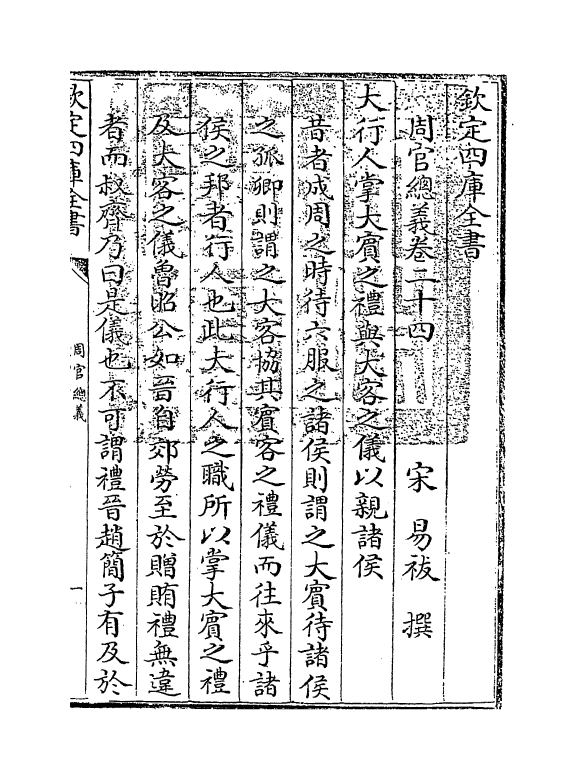 欽定四庫全書
周官總義卷二十四　宋　易祓　撰
大行人掌大賓之禮與大客之儀以親諸侯
昔者成周之時待六服之諸侯則謂之大賓待諸侯
之孤卿則謂之大客協其賓客之禮儀而往來乎諸
侯之邦者行人也此大行人之職所以掌大賓之禮
及大客之儀魯昭公如晉自郊勞至於贈賄禮無違
者而叔齊乃曰是儀也不可謂禮晉趙簡子有及於
欽定四庫全書
周官總義
一